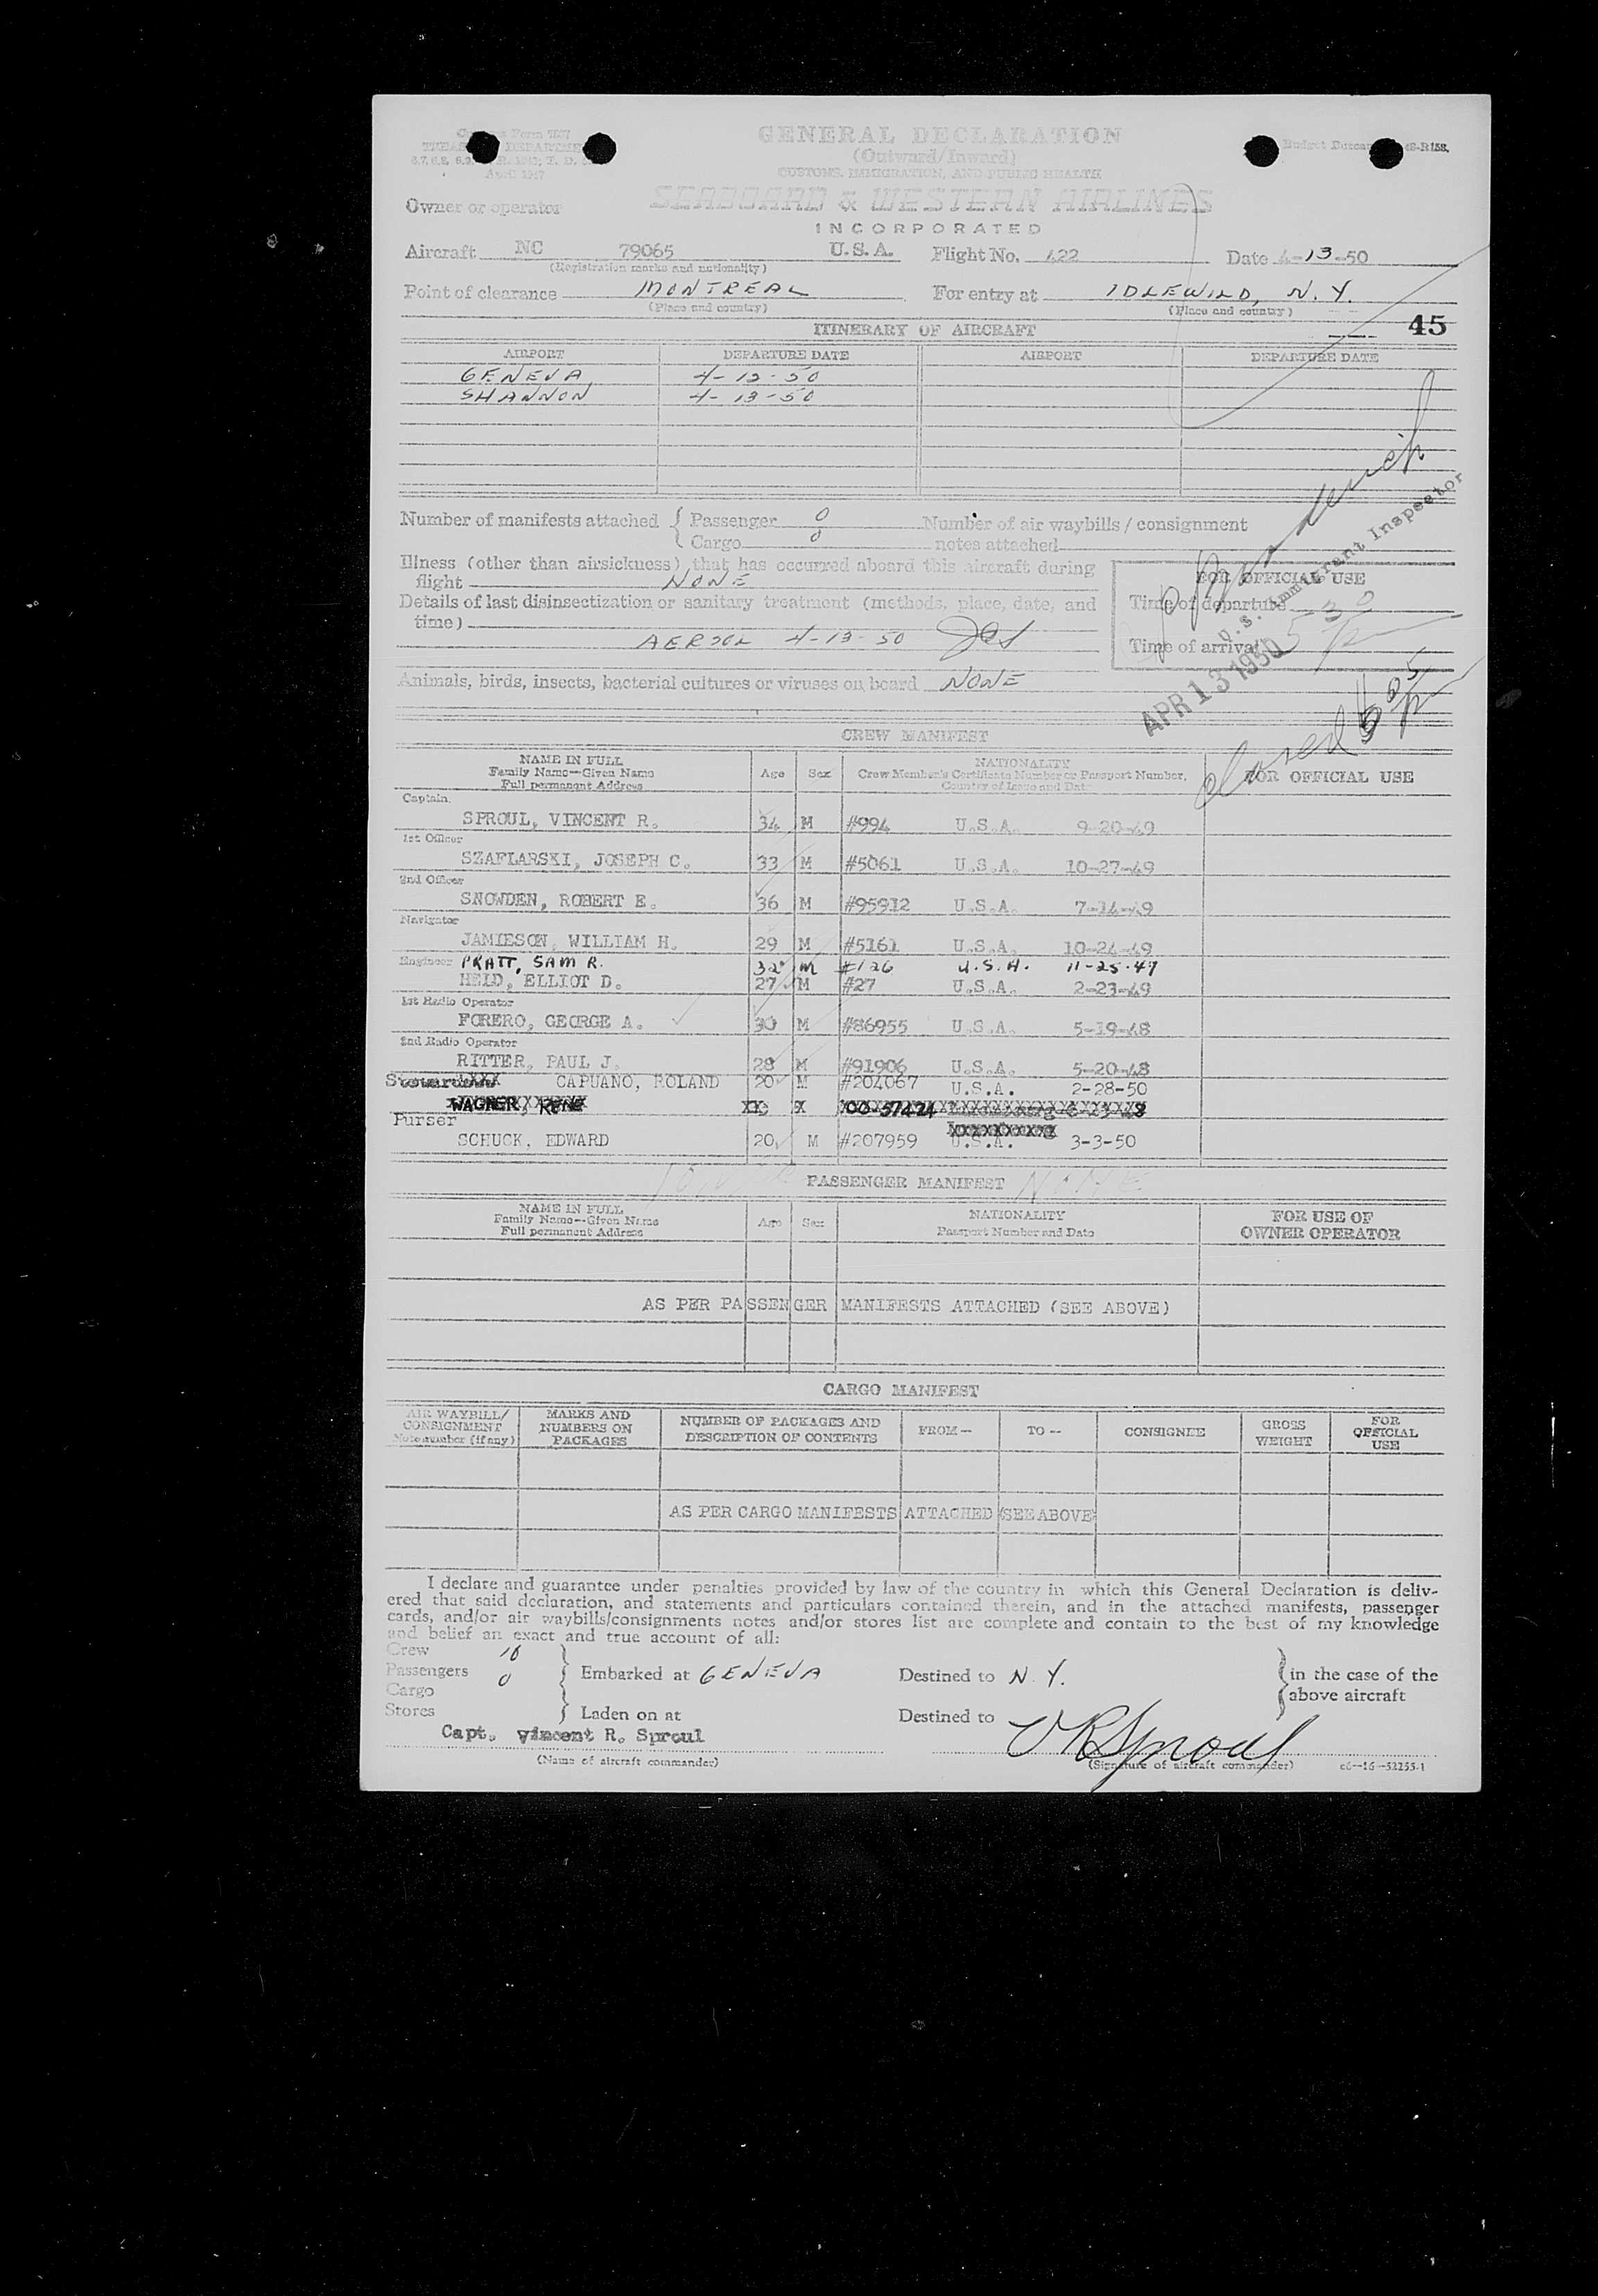 GENERAL DECLARATION
(Outward/Inward)
CUSTOMS, IMMIGRATION, AND PUBLIC HEALTH
April 1947
Owner or operator SEABOARD & WESTERN AIRLINES
INCORPORATED
Aircraft NC 79065 U.S.A. Flight No. 422 Date 4-13-50
(Registration marks and nationality)
Point of clearance MONTREAL For entry at IDLEWILD, N.Y.
(Place and country) (Place and country)
ITINERARY OF AIRCRAFT 45
AIRPORT DEPARTURE DATE AIRPORT DEPARTURE DATE
GENEVA 4-12-50
SHANNON 4-13-50
Number of manifests attached { Passenger 0 Number of air waybills / consignment
Cargo 0 notes attached
Illness (other than airsickness) that has occurred aboard this aircraft during
flight NONE
FOR OFFICIAL USE
Details of last disinsectization or sanitary treatment (methods, place, date, and
time)
AEROSOL 4-13-50
Time of departure
Time of arrival
U.S. Immigrant Inspector
APR 13 1950
Animals, birds, insects, bacterial cultures or viruses on board NONE
CREW MANIFEST
NAME IN FULL
Family Name--Given Name
Full permanent Address
Age Sex
NATIONALITY
Crew Member's Certificate Number or Passport Number,
Country of Issue and Date
FOR OFFICIAL USE
Captain
SPROUL, VINCENT R. 34 M #994 U.S.A. 9-20-49
1st Officer
SZAFLARSKI, JOSEPH C. 33 M #5061 U.S.A. 10-27-49
2nd Officer
SNOWDEN, ROBERT E. 36 M #95912 U.S.A. 7-14-49
Navigator
JAMIESON, WILLIAM H. 29 M #5161 U.S.A. 10-24-49
Engineer PRATT, SAM R. 32 M #126 U.S.A. 11-25-47
HELD, ELLIOT D. 27 M #27 U.S.A. 2-23-49
1st Radio Operator
FORERO, GEORGE A. 30 M #86955 U.S.A. 5-19-48
2nd Radio Operator
RITTER, PAUL J. 28 M #91906 U.S.A. 5-20-48
CAPUANO, ROLAND 20 M #204067 U.S.A. 2-28-50
WAGNER, RENE
Purser
SCHUCK, EDWARD 20 M #207959 U.S.A. 3-3-50
PASSENGER MANIFEST NONE
NAME IN FULL
Family Name--Given Name
Full permanent Address
Age Sex
NATIONALITY
Passport Number and Date
FOR USE OF
OWNER OPERATOR
AS PER PASSENGER MANIFESTS ATTACHED (SEE ABOVE)
CARGO MANIFEST
AIR WAYBILL/
CONSIGNMENT
Note number (if any)
MARKS AND
NUMBERS ON
PACKAGES
NUMBER OF PACKAGES AND
DESCRIPTION OF CONTENTS
FROM--
TO--
CONSIGNEE
GROSS
WEIGHT
FOR
OFFICIAL
USE
AS PER CARGO MANIFESTS ATTACHED (SEE ABOVE)
I declare and guarantee under penalties provided by law of the country in which this General Declaration is deliv-
ered that said declaration, and statements and particulars contained therein, and in the attached manifests, passenger
cards, and/or air waybills/consignments notes and/or stores list are complete and contain to the best of my knowledge
and belief an exact and true account of all:
Crew 10
Passengers 0 Embarked at GENEVA Destined to N.Y. in the case of the
Cargo above aircraft
Stores Laden on at Destined to
Capt. Vincent R. Sproul VRSproul
(Name of aircraft commander) (Signature of aircraft commander) c6--16--52255-1